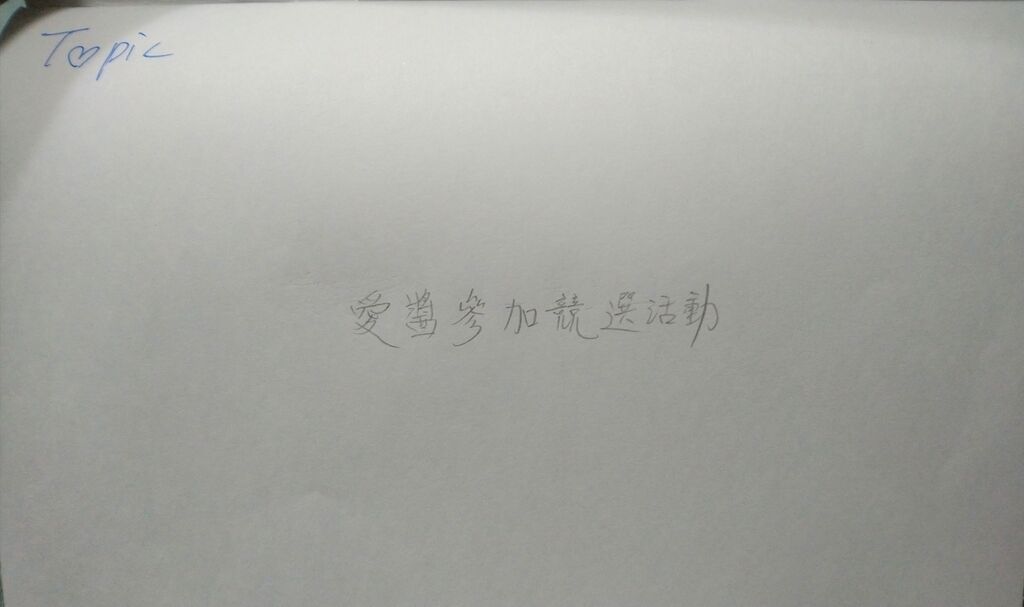 Topic
愛醬參加競選活動